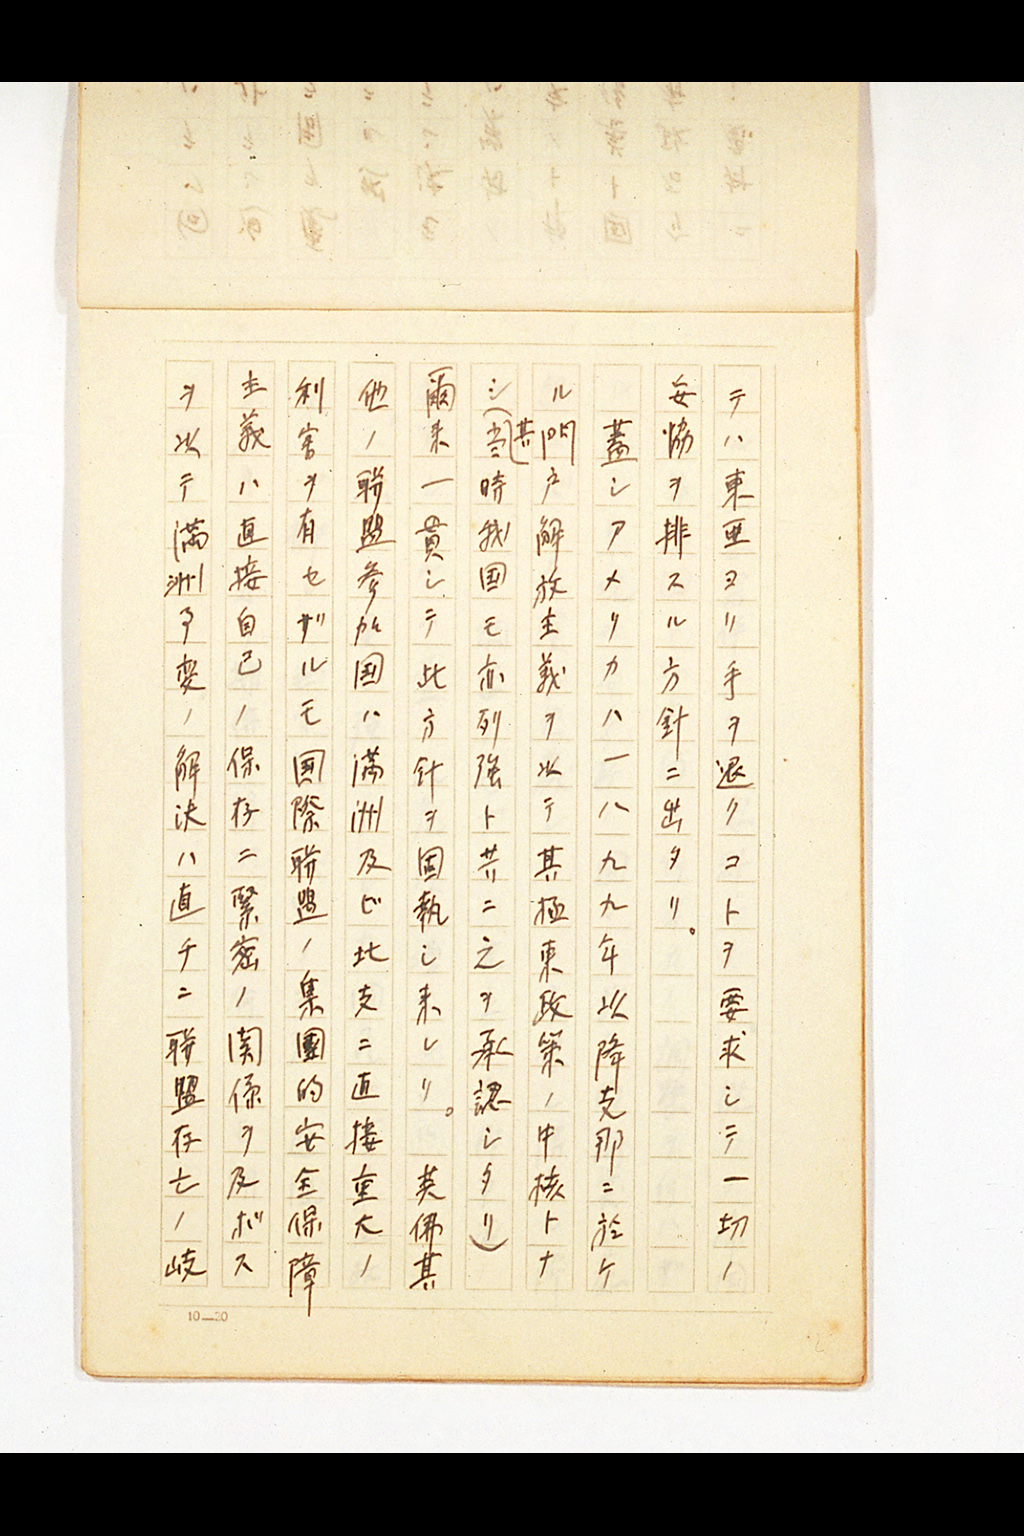 テハ東亜ヨリ手ヲ退クコトヲ要求シテ一切ノ
妥協ヲ排スル方針ニ出タリ。
蓋シアメリカハ一八九九年以降支那ニ於ケ
ル門戸解放主義ヲ以テ其極東政策ノ中核トナ
シ(其当時我国モ亦列強ト共ニ之ヲ承認シタリ)
爾来一貫シテ此方針ヲ固執シ来レリ。 英佛其
他ノ聯盟参加国ハ満洲及ビ北支ニ直接重大ノ
利害ヲ有セザルモ国際聯盟ノ集團的安全保障
主義ハ直接自己ノ保存ニ緊密ノ関係ヲ及ボス
ヲ以テ満洲事変ノ解決ハ直チニ聯盟存亡ノ岐
10—20